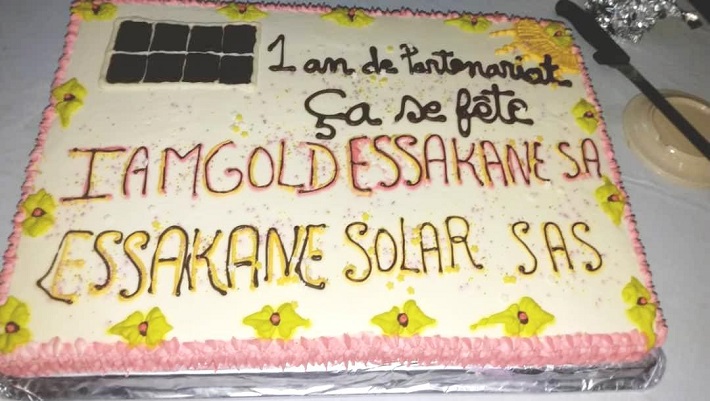 1 an de Partenariat
Ça se fête
IAMGOLD ESSAKANE SA
ESSAKANE SOLAR SAS